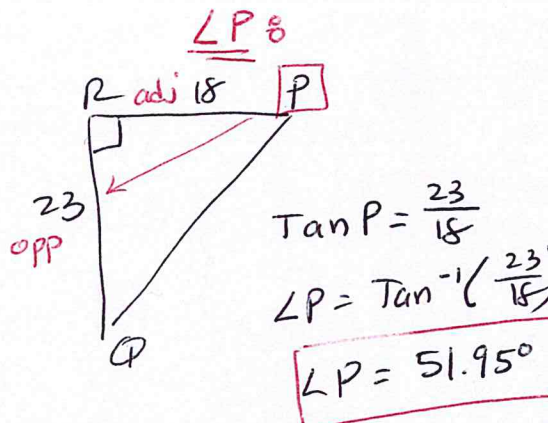 ∠P:
R adj 18 P
23
opp
Q
Tan P = 23/18
∠P = Tan⁻¹(23/18)
∠P = 51.95°